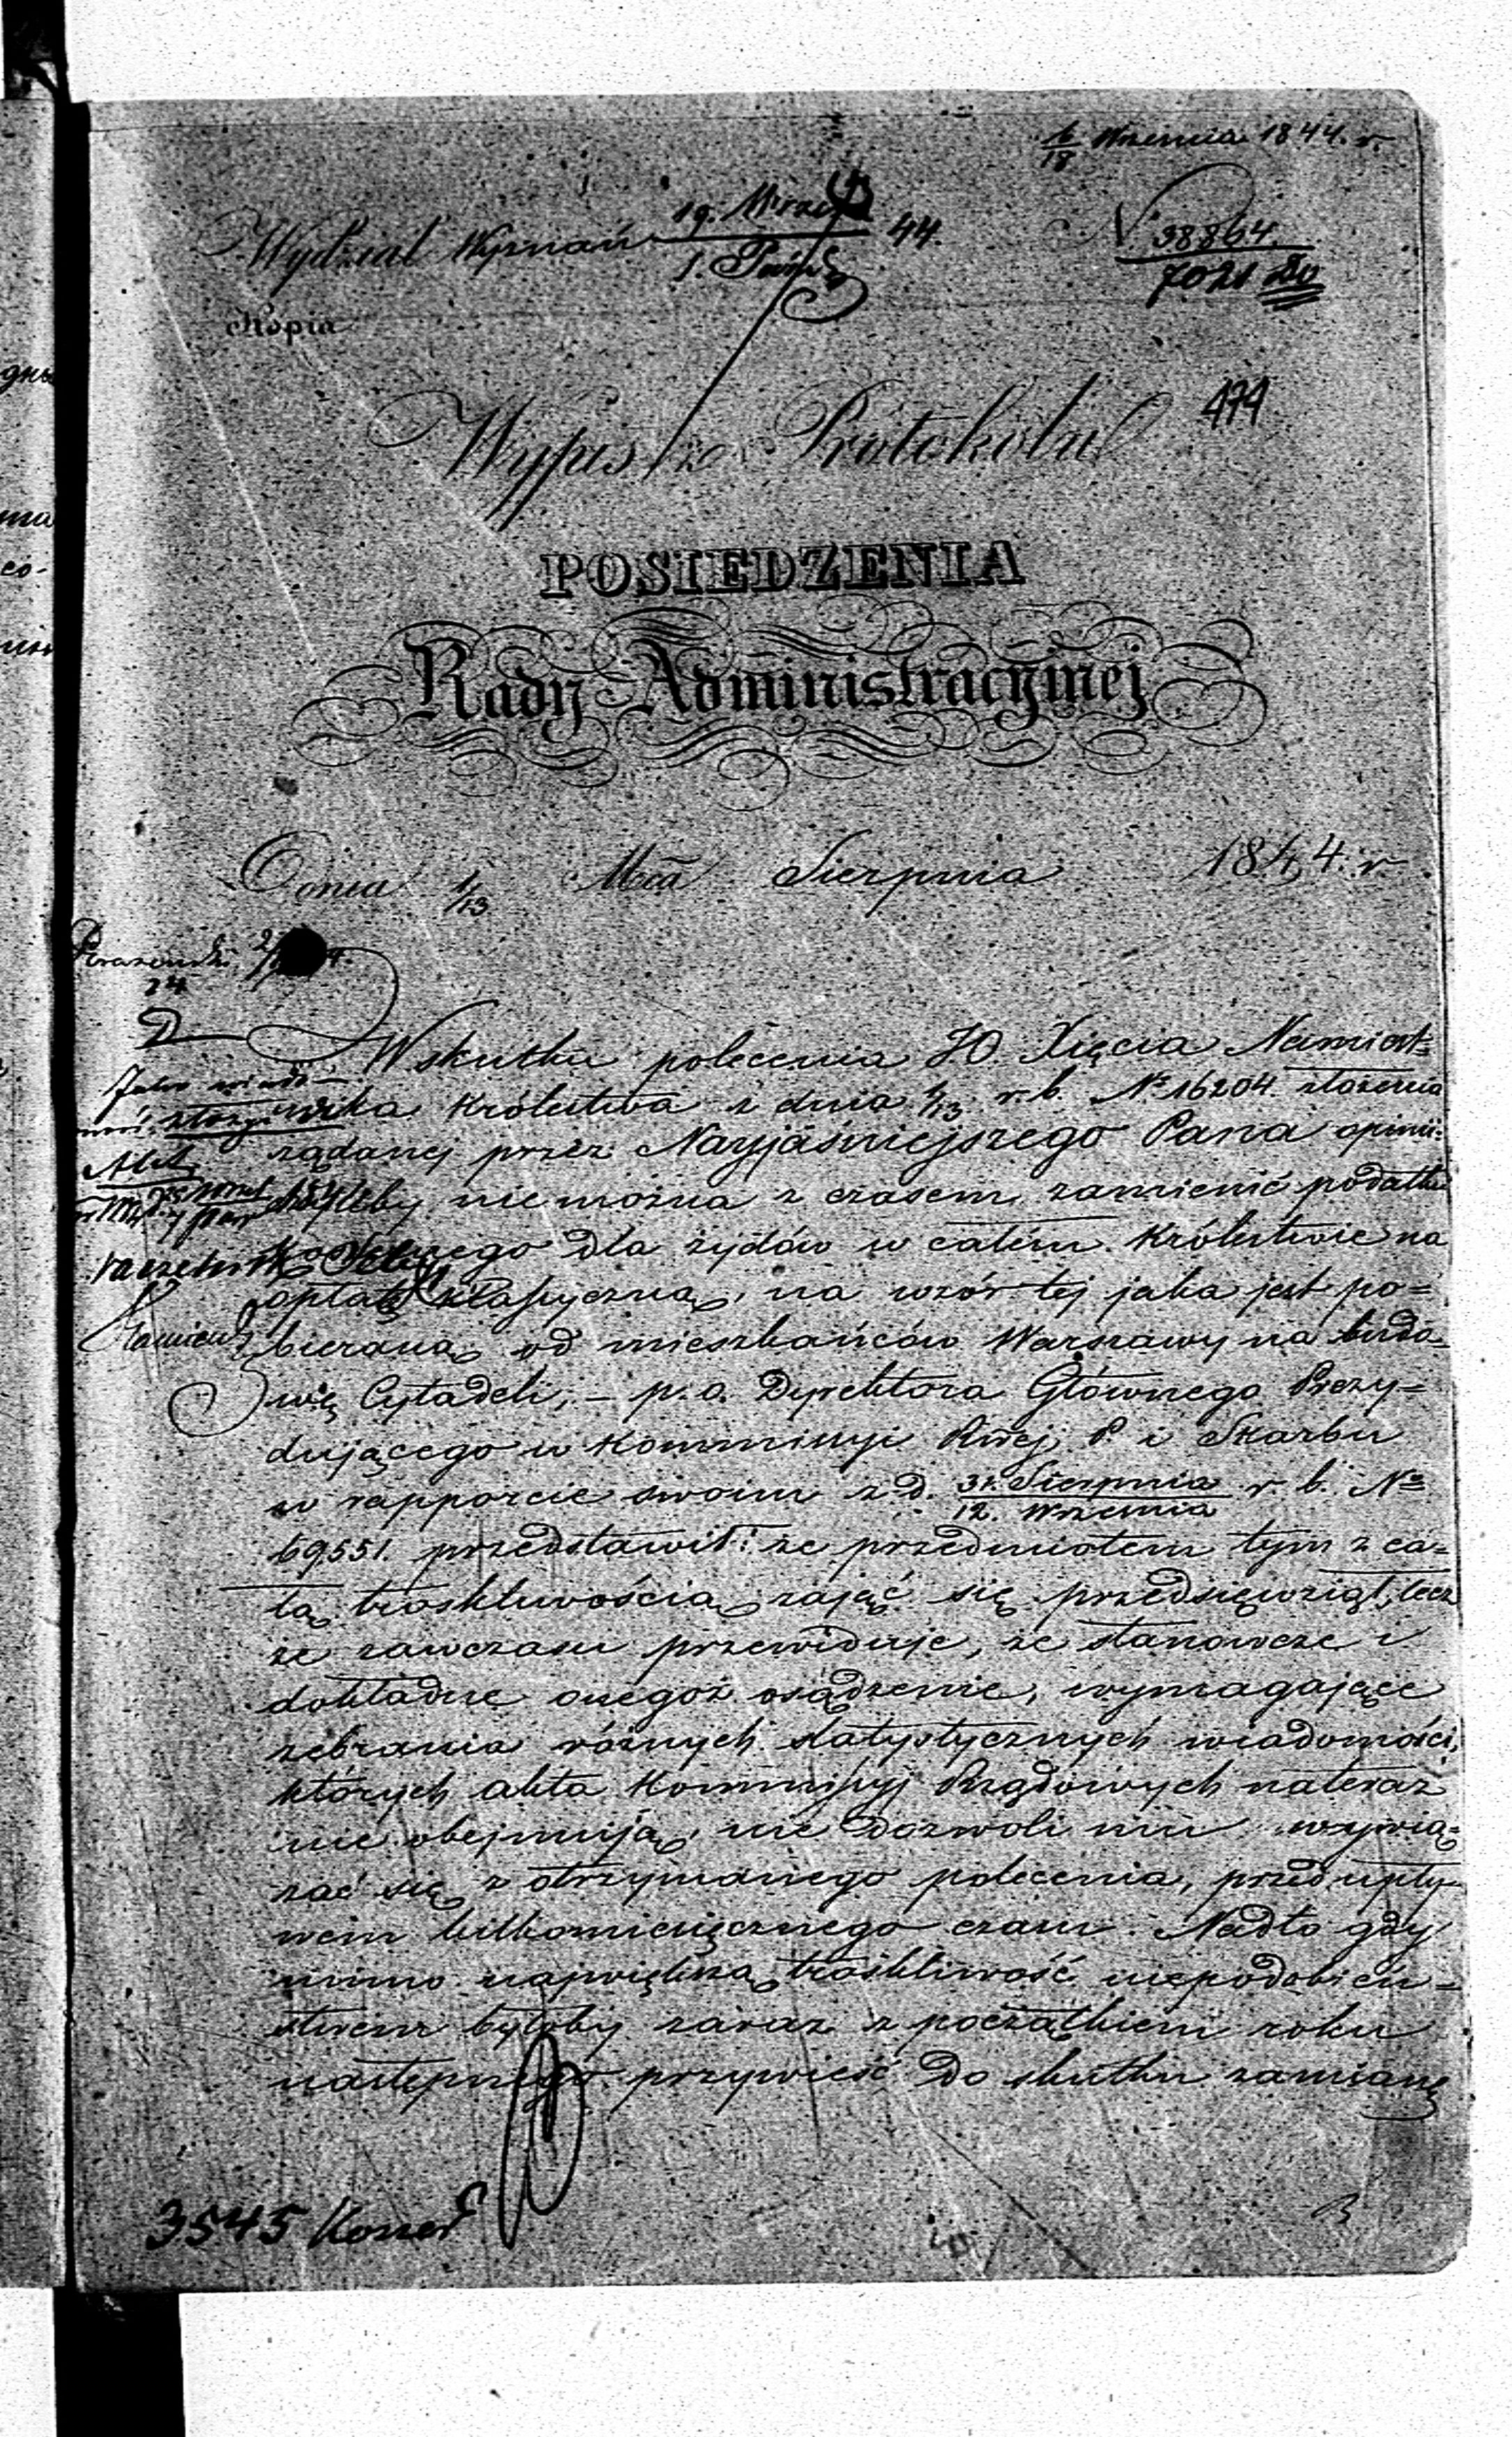 6/18 Września 1844. r.
Wydział Wyznań 19. Wrześ / 1. Paźdź 44.
N 38864
7021
Kopia
474
Wypis z Protokółu
POSIEDZENIA
Rady Administracyjnej
Dnia 1/13 Mca Sierpnia 1844. r.
24
Wskutku polecenia JO. Xięcia Namiest-
nika Królestwa z dnia 1/13 r. b. No 16204. złożenia
żądanej przez Nayjaśniejszego Pana opinii:
czyliby nie można z czasem zamienić podatku
koszernego dla żydów w całem Królestwie na
opłatę klassyczną, na wzór tej jaka jest po-
bieraną od mieszkańców Warszawy na budo-
wię Cytadeli, – p. o. Dyrektora Głównego Prezy-
dującego w Kommissyi Rwej P. i Skarbu
w rapporcie swoim z d. 31. Sierpnia / 12. Września r. b. No
69551. przedstawił: że przedmiotem tym z ca-
łą troskliwością zająć się przedsięwziął, lecz
że zawczasu przewiduje, że stanowcze i
dokładne onegoż osądzenie, wymagające
zebrania różnych statystycznych wiadomości,
których akta Kommissyj Rządowych nateraz
nie obejmują, nie dozwoli mu wywią-
zać się z otrzymanego polecenia, przed upły-
wem kilkomiesięcznego czasu. Nadto gdy
mimo największą troskliwość niepodobień-
stwem byłoby zaraz z początkiem roku
następnego przywieść do skutku zamianę
3545 Koszer